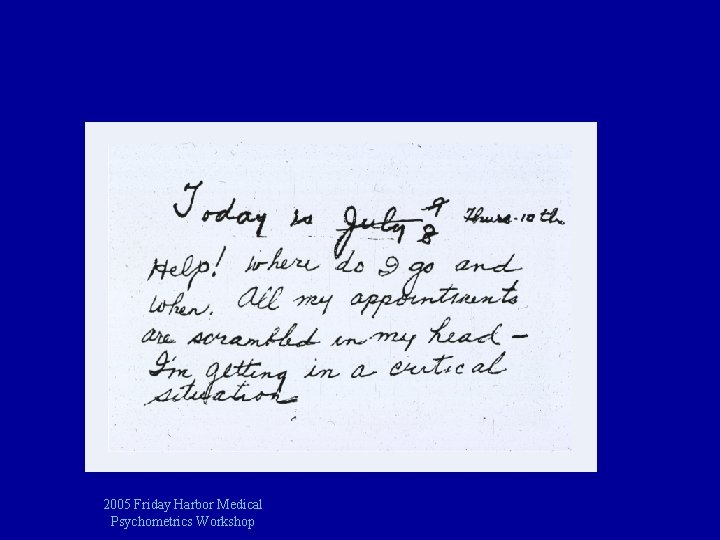 Today is July 8 9 Thurs. 10 th
Help! where do I go and
when. All my appointments
are scrambled in my head –
I'm getting in a critical
situation
2005 Friday Harbor Medical
Psychometrics Workshop